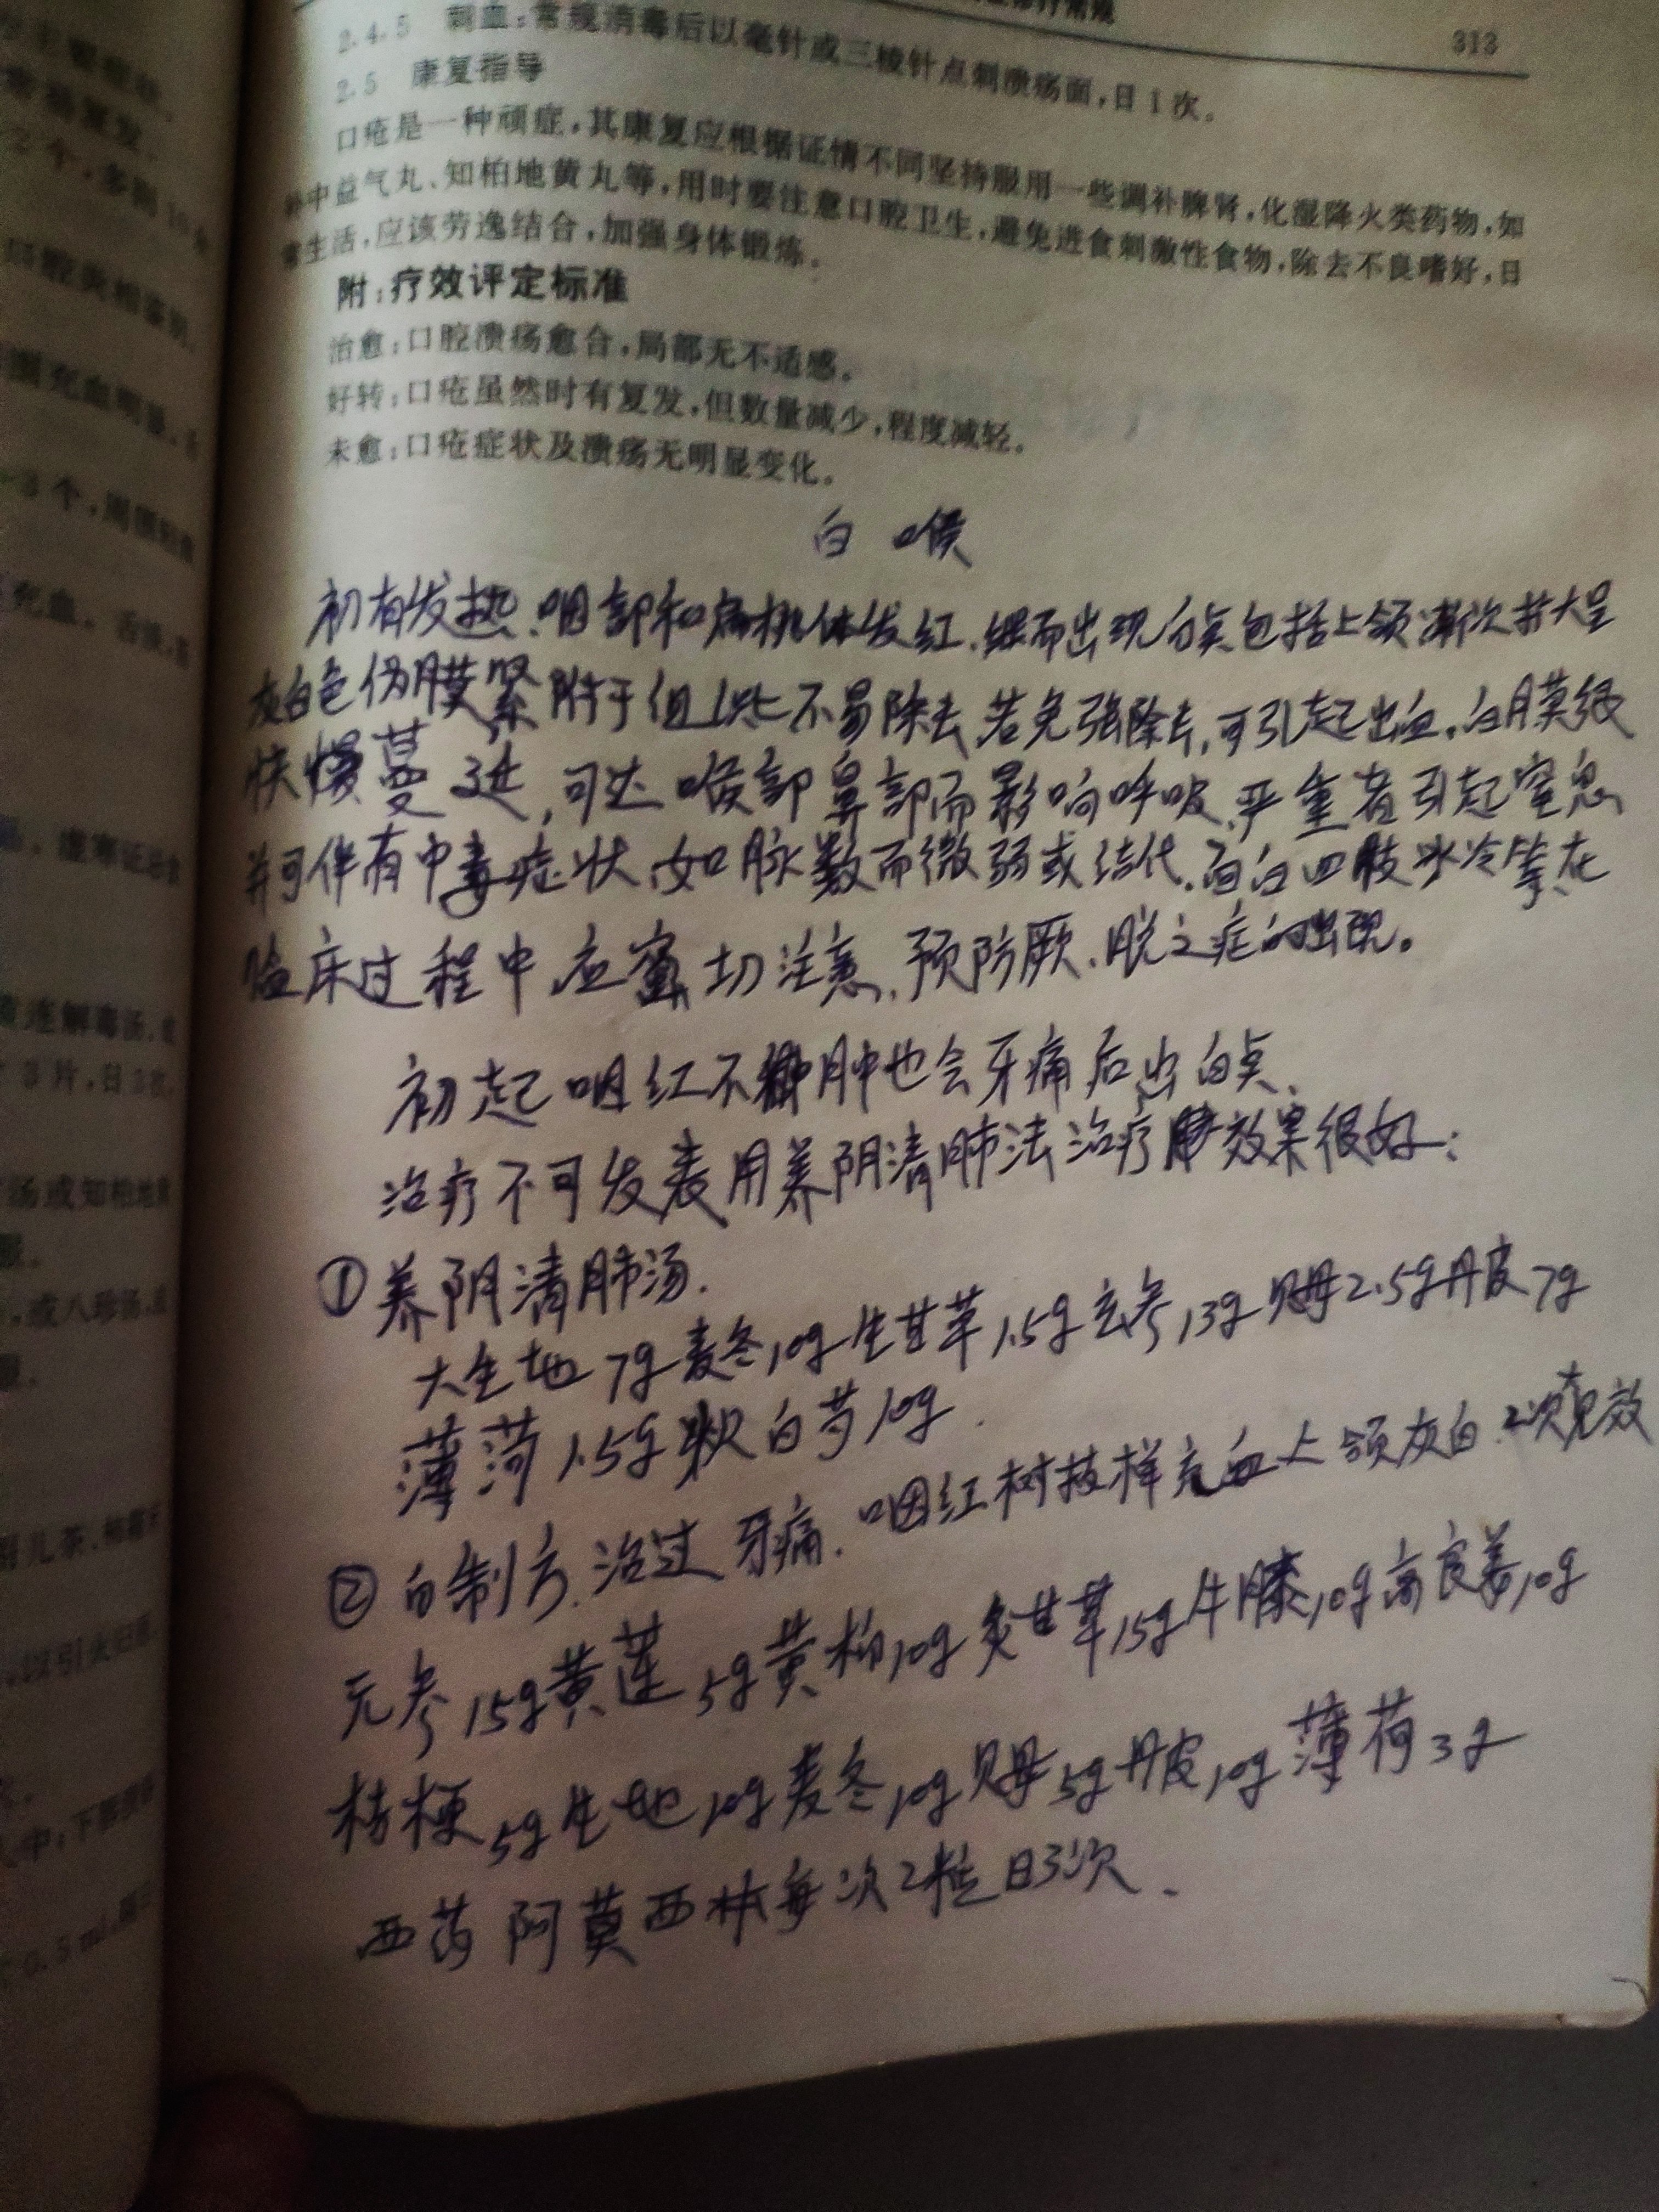 诊疗常规
313
2.4.5 刺血：常规消毒后以毫针或三棱针点刺溃疡面，日1次。
2.5 康复指导
口疮是一种顽症，其康复应根据证情不同坚持服用一些调补脾肾，化湿降火类药物，如
补中益气丸、知柏地黄丸等，用时要注意口腔卫生，避免进食刺激性食物，除去不良嗜好，日
常生活，应该劳逸结合，加强身体锻炼。
附：疗效评定标准
治愈：口腔溃疡愈合，局部无不适感。
好转：口疮虽然时有复发，但数量减少，程度减轻。
未愈：口疮症状及溃疡无明显变化。
白喉
初有发热、咽部和扁桃体发红、继而出现白点包括上颌渐次扩大呈
灰白色伪膜紧附于组织不易除去，若免强除去，可引起出血。白膜级
快慢蔓延，可达喉部鼻部而影响呼吸，严重者引起窒息
并可伴有中毒症状，如脉数而微弱或结代、面白四肢冰冷等，在
临床过程中，应密切注意，预防厥、脱之症的出现。
初起咽红不肿也会牙痛后出白点、
治疗不可发表用养阴清肺法治疗效果很好：
①养阴清肺汤.
大生地7g麦冬10g生甘草1.5g玄参13g贝母2.5g丹皮7g
薄荷1.5g炒白芍10g.
②自制方.治过牙痛.咽红树枝样充血上颌灰白.2次见效
元参15g黄莲5g黄柏10g炙甘草15g牛膝10g高良姜10g
桔梗5g生地10g麦冬10g贝母5g丹皮10g薄荷3g
西药阿莫西林每次2粒日3次、
黄连解毒汤，
3片，日3次，
汤或知柏地黄
，或八珍汤，
儿茶、
，以引火归原
0.5ml，